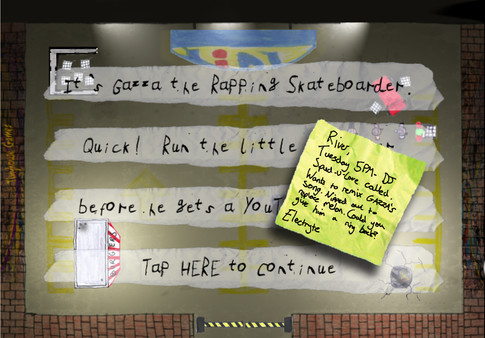 It's Gazza the Rapping Skateboarder.
Quick! Run the little
before he gets a You
Tap HERE to continue
River,
Tuesday 5PM. DJ
called
wants to remix Gazza's
song. Nipped out to
replace melon. Could you
give him a ring back?
Electryte